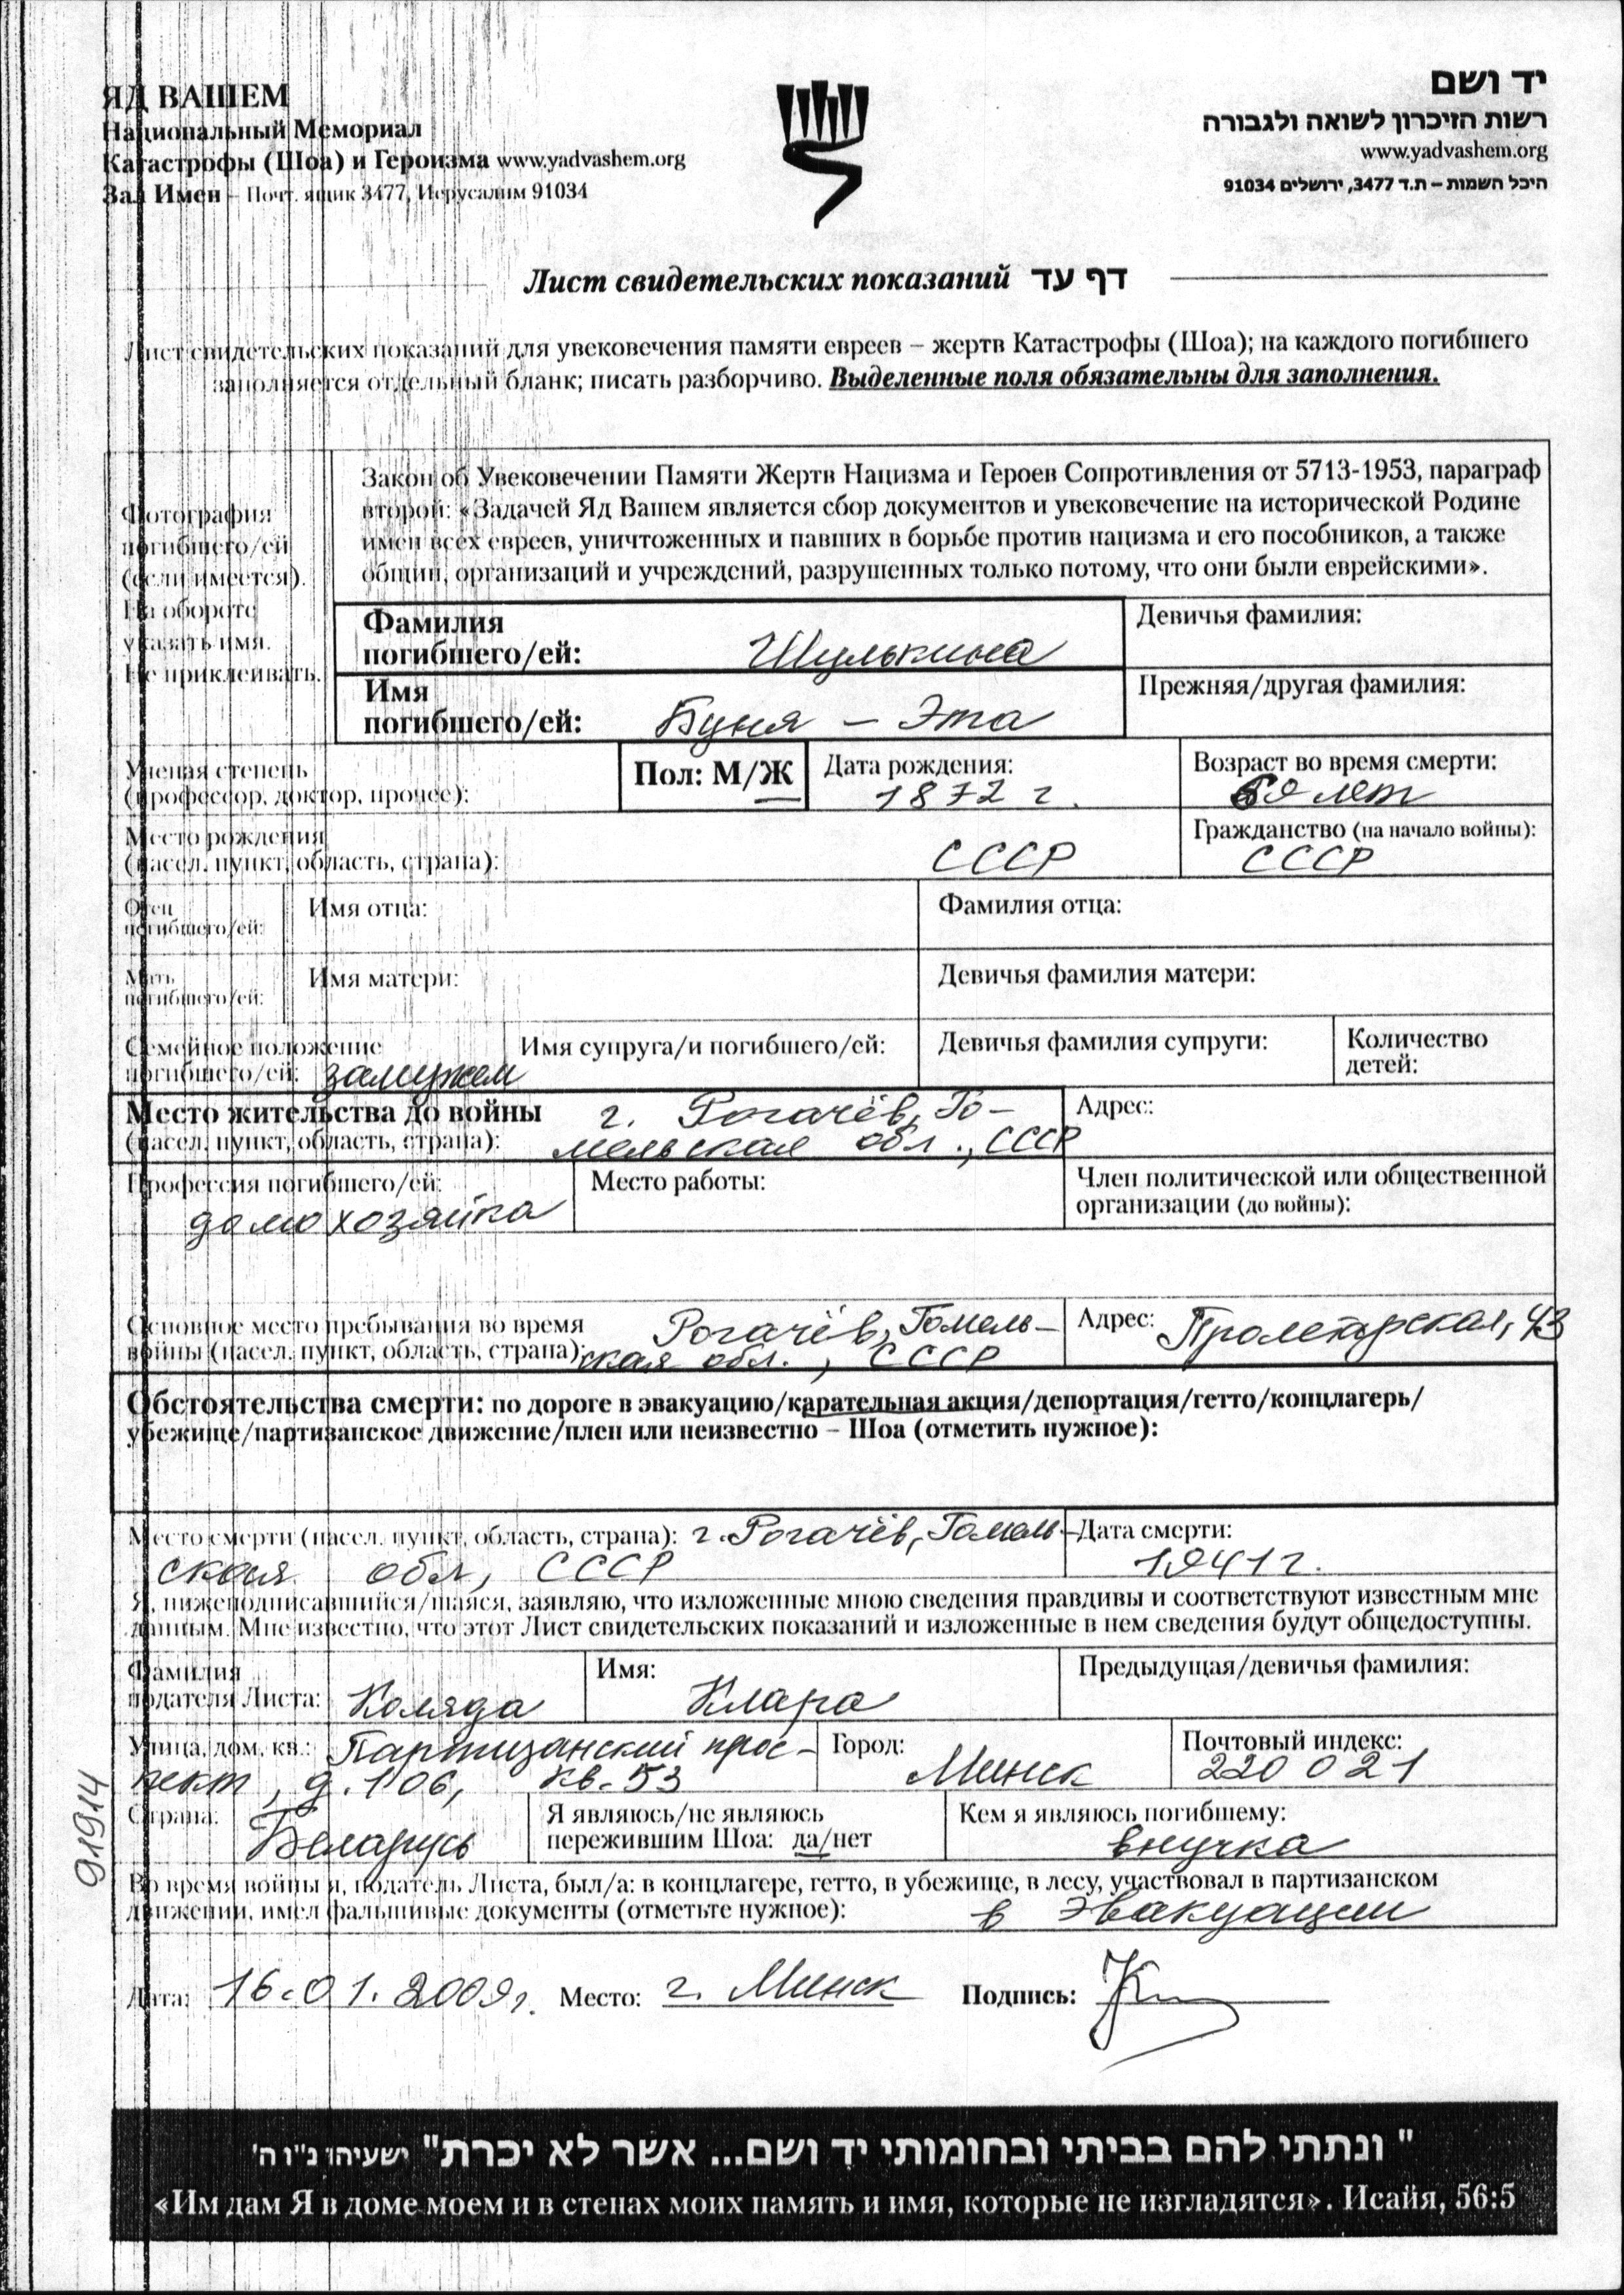 ЯД ВАШЕМ
Национальный Мемориал
Катастрофы (Шоа) и Героизма www.yadvashem.org
Зал Имен – Почт. ящик 3477, Иерусалим 91034
יד ושם
רשות הזיכרון לשואה ולגבורה
www.yadvashem.org
היכל השמות – ת.ד 3477, ירושלים 91034
Лист свидетельских показаний דף עד
Лист свидетельских показаний для увековечения памяти евреев – жертв Катастрофы (Шоа); на каждого погибшего
заполняется отдельный бланк; писать разборчиво. Выделенные поля обязательны для заполнения.
Фотография
погибшего/ей
(если имеется).
На обороте
указать имя.
Не приклеивать.
Закон об Увековечении Памяти Жертв Нацизма и Героев Сопротивления от 5713-1953, параграф
второй: «Задачей Яд Вашем является сбор документов и увековечение на исторической Родине
имен всех евреев, уничтоженных и павших в борьбе против нацизма и его пособников, а также
общин, организаций и учреждений, разрушенных только потому, что они были еврейскими».
Фамилия
погибшего/ей: Шулькина
Девичья фамилия:
Имя
погибшего/ей: Буня – Эта
Прежняя/другая фамилия:
Ученая степень
(профессор, доктор, прочее):
Пол: М/Ж
Дата рождения:
1872 г.
Возраст во время смерти:
69 лет
Место рождения
(насел. пункт, область, страна): СССР
Гражданство (на начало войны):
СССР
Отец
погибшего/ей:
Имя отца:
Фамилия отца:
Мать
погибшего/ей:
Имя матери:
Девичья фамилия матери:
Семейное положение
погибшего/ей: замужем
Имя супруга/и погибшего/ей:
Девичья фамилия супруги:
Количество
детей:
Место жительства до войны г. Рогачёв, Го-
(насел. пункт, область, страна): мельская обл., СССР
Адрес:
Профессия погибшего/ей:
домохозяйка
Место работы:
Член политической или общественной
организации (до войны):
Основное место пребывания во время Рогачёв, Гомель-
войны (насел. пункт, область, страна): ская обл., СССР
Адрес: Пролетарская, 43
Обстоятельства смерти: по дороге в эвакуацию/карательная акция/депортация/гетто/концлагерь/
убежище/партизанское движение/плен или неизвестно – Шоа (отметить нужное):
Место смерти (насел. пункт, область, страна): г. Рогачёв, Гомель-
ская обл, СССР
Дата смерти:
1941 г.
Я, нижеподписавшийся/шаяся, заявляю, что изложенные мною сведения правдивы и соответствуют известным мне
данным. Мне известно, что этот Лист свидетельских показаний и изложенные в нем сведения будут общедоступны.
Фамилия
подателя Листа: Коляда
Имя:
Клара
Предыдущая/девичья фамилия:
Улица, дом, кв.: Партизанский прос-
пект, д. 106, кв. 53
Город:
Минск
Почтовый индекс:
220021
Страна:
Беларусь
Я являюсь/не являюсь
пережившим Шоа: да/нет
Кем я являюсь погибшему:
внучка
Во время войны я, податель Листа, был/а: в концлагере, гетто, в убежище, в лесу, участвовал в партизанском
движении, имел фальшивые документы (отметьте нужное): в эвакуации
Дата: 16.01.2009г. Место: г. Минск Подпись:
91914
" ונתתי להם בביתי ובחומותי יד ושם... אשר לא יכרת" ישעיהו נ"ו ה'
«Им дам Я в доме моем и в стенах моих память и имя, которые не изгладятся». Исайя, 56:5